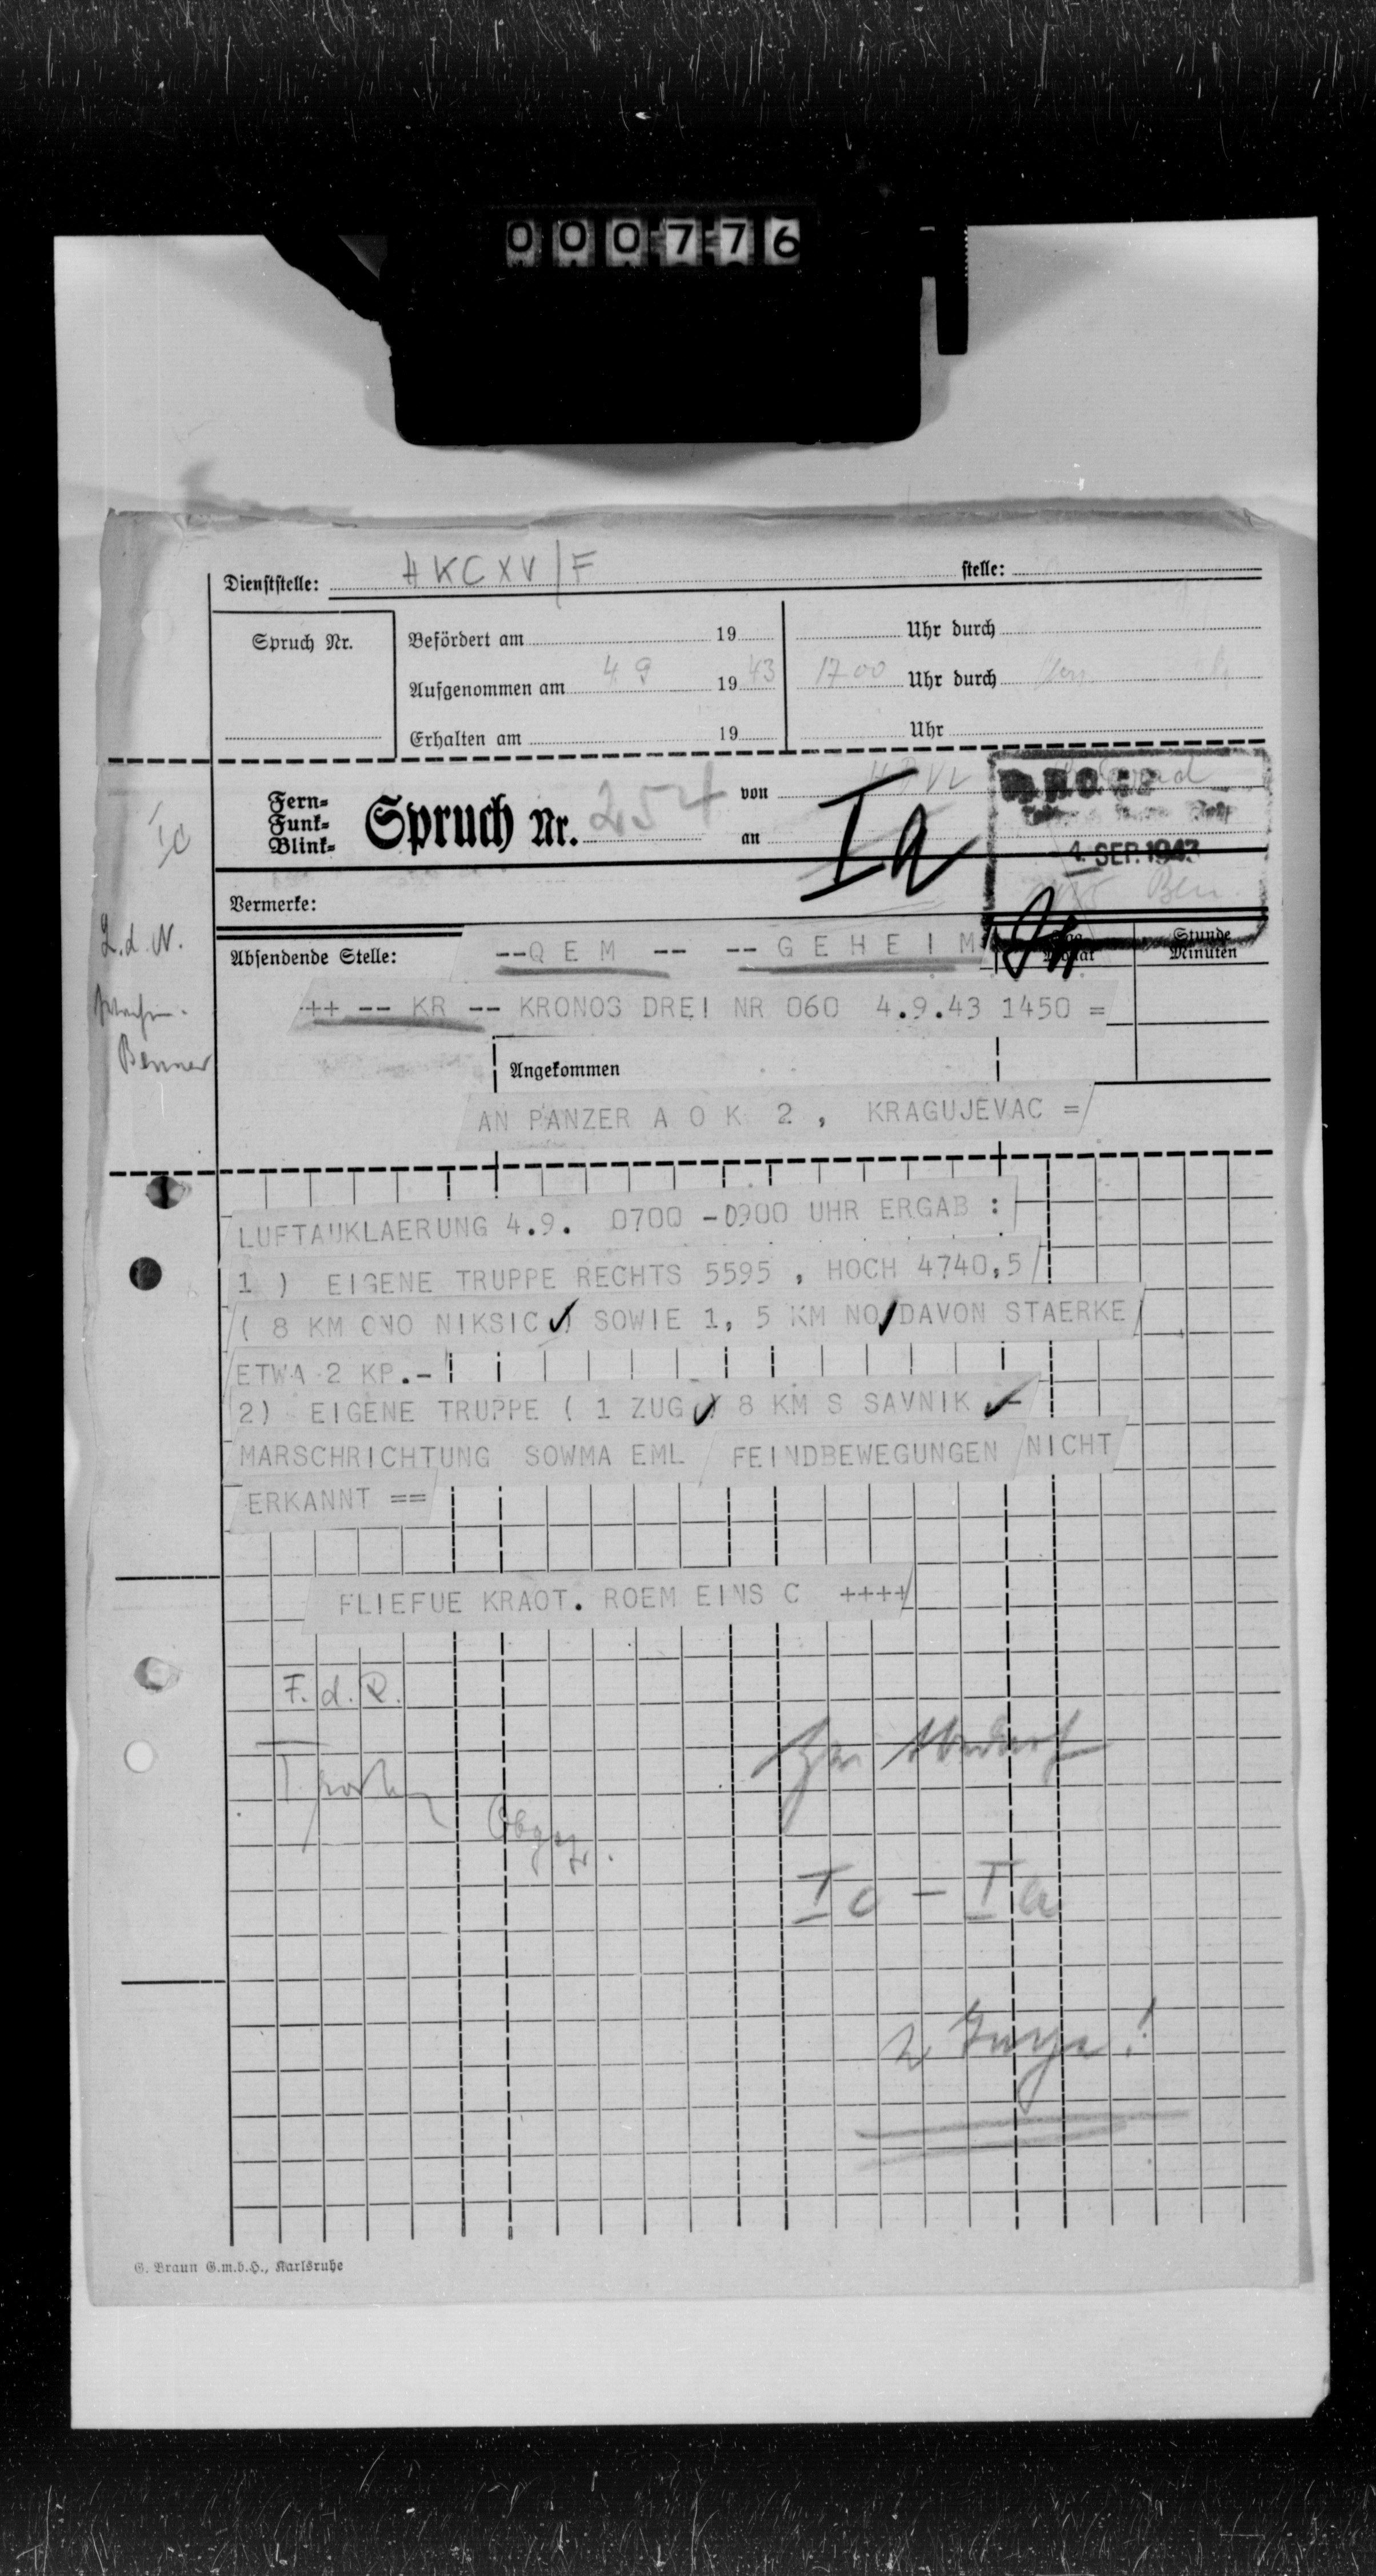 000776
Dienststelle: HKCXV/F stelle:
Spruch Nr.
Befördert am 19 Uhr durch
Aufgenommen am 4 9 1943 1700 Uhr durch
Erhalten am 19 Uhr
Fern-
Funk-
Blink-
Spruch Nr. 254 von
an
Ia
4. SEP. 1943
Ic
Vermerke:
Z.d.A.
Absendende Stelle: --QEM -- -- G E H E I M
Monat
Stunde
Minuten
++ -- KR -- KRONOS DREI NR 060 4.9.43 1450 =
Angekommen
AN PANZER A O K 2 , KRAGUJEVAC =
LUFTAUKLAERUNG 4.9. 0700 -0900 UHR ERGAB :
1 ) EIGENE TRUPPE RECHTS 5595 , HOCH 4740,5
( 8 KM ONO NIKSIC ) SOWIE 1, 5 KM NO DAVON STAERKE
ETWA 2 KP.-
2) EIGENE TRUPPE ( 1 ZUG ) 8 KM S SAVNIK -
MARSCHRICHTUNG SOWMA EML FEINDBEWEGUNGEN NICHT
ERKANNT ==
FLIEFUE KRAOT. ROEM EINS C ++++
F.d.R.
Obgefr.
Ic - Ia
G. Braun G.m.b.H., Karlsruhe